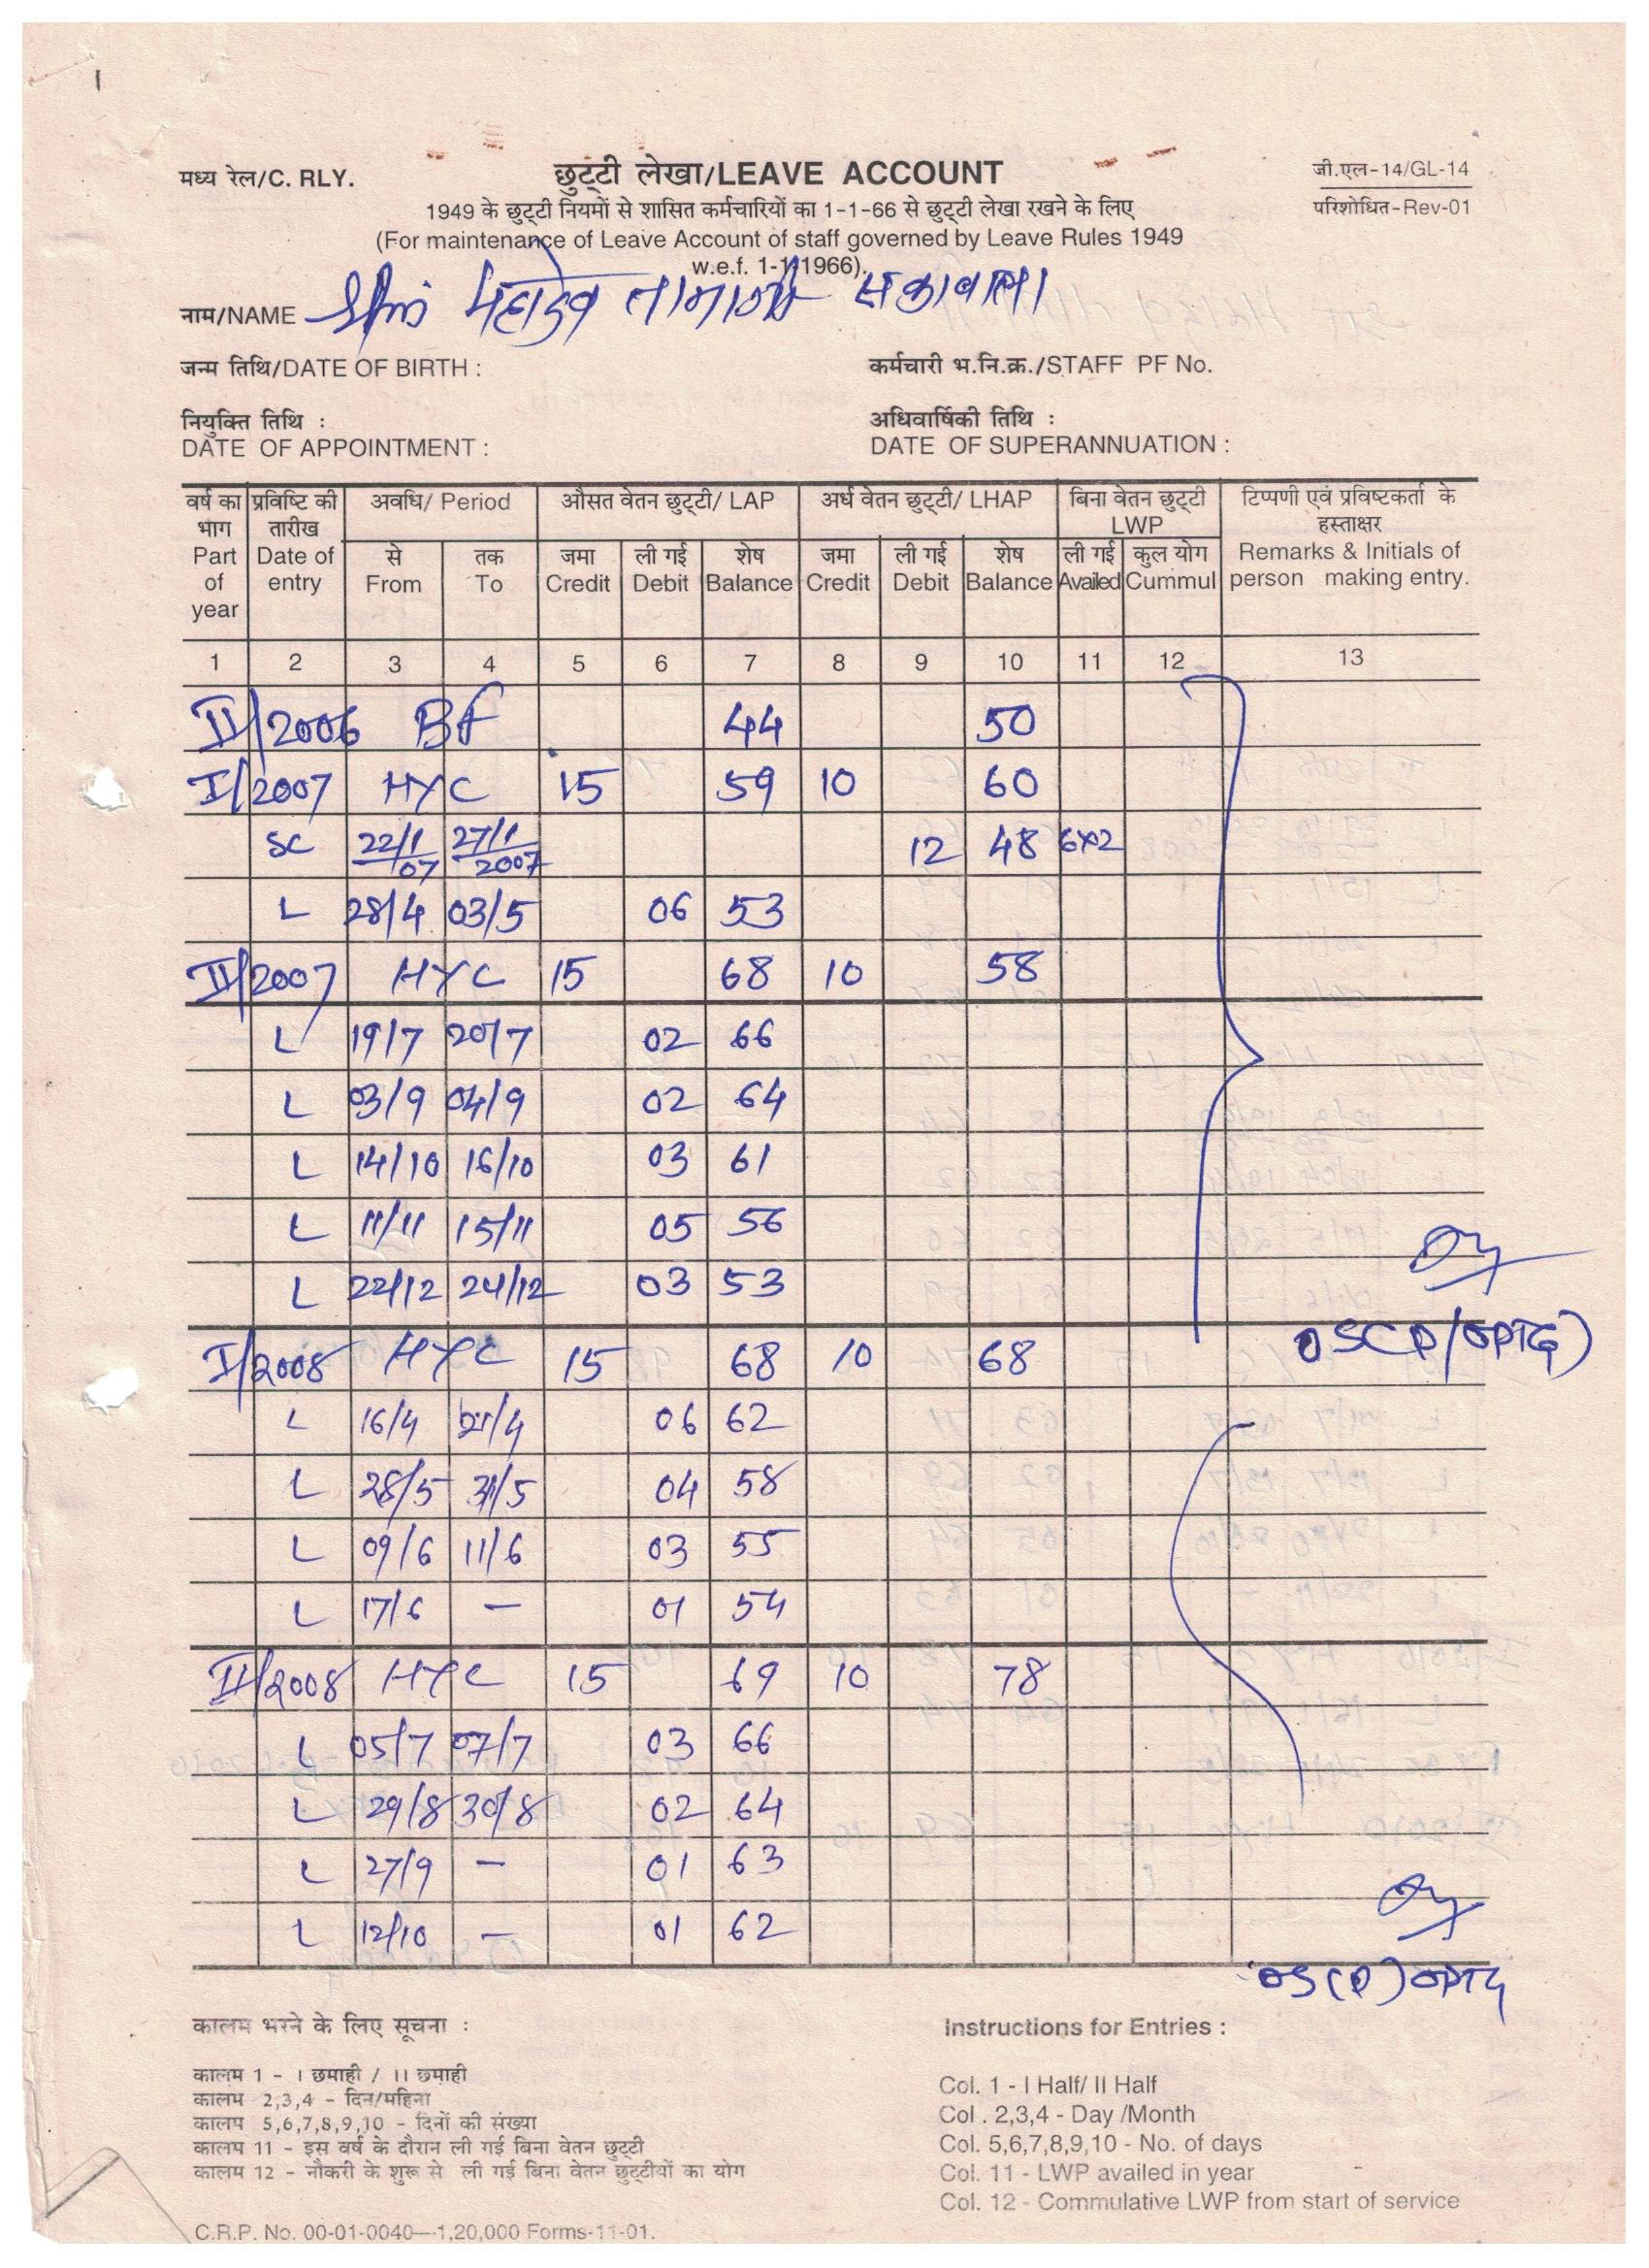 मध्य रेल/C. RLY.
छुट्टी लेखा/LEAVE ACCOUNT
जी.एल-14/GL-14
परिशोधित-Rev-01
1949 के छुट्टी नियमों से शासित कर्मचारियों का 1-1-66 से छुट्टी लेखा रखने के लिए
(For maintenance of Leave Account of staff governed by Leave Rules 1949
w.e.f. 1-1-1966).
नाम/NAME Shri महादेव तानाजी
जन्म तिथि/DATE OF BIRTH :
कर्मचारी भ.नि.क्र./STAFF PF No.
नियुक्ति तिथि :
DATE OF APPOINTMENT :
अधिवार्षिकी तिथि :
DATE OF SUPERANNUATION :
वर्ष का भाग Part of year
प्रविष्टि की तारीख Date of entry
अवधि/ Period
से From
तक To
औसत वेतन छुट्टी/ LAP
जमा Credit
ली गई Debit
शेष Balance
अर्ध वेतन छुट्टी/ LHAP
जमा Credit
ली गई Debit
शेष Balance
बिना वेतन छुट्टी LWP
ली गई Availed
कुल योग Cummul
टिप्पणी एवं प्रविष्टकर्ता के हस्ताक्षर
Remarks & Initials of person making entry.
1 2 3 4 5 6 7 8 9 10 11 12 13
II/2006 BF 44 50
I/2007 HYC 15 59 10 60
SC 22/1/07 27/1/2007 12 48 6x2
L 28/4 03/5 06 53
II/2007 HYC 15 68 10 58
L 19/7 20/7 02 66
L 03/9 04/9 02 64
L 14/10 16/10 03 61
L 11/11 15/11 05 56
L 22/12 24/12 03 53
OSCP/OPTG)
I/2008 HYC 15 68 10 68
L 16/4 21/4 06 62
L 28/5 31/5 04 58
L 09/6 11/6 03 55
L 17/6 - 01 54
II/2008 HYC 15 69 10 78
L 05/7 07/7 03 66
L 29/8 30/8 02 64
L 27/9 - 01 63
L 12/10 - 01 62
OS(P)OPTG
कालम भरने के लिए सूचना :
कालम 1 - I छमाही / II छमाही
कालम 2,3,4 - दिन/महिना
कालम 5,6,7,8,9,10 - दिनों की संख्या
कालम 11 - इस वर्ष के दौरान ली गई बिना वेतन छुट्टी
कालम 12 - नौकरी के शुरू से ली गई बिना वेतन छुट्टीयों का योग
C.R.P. No. 00-01-0040—1,20,000 Forms-11-01.
Instructions for Entries :
Col. 1 - I Half/ II Half
Col . 2,3,4 - Day /Month
Col. 5,6,7,8,9,10 - No. of days
Col. 11 - LWP availed in year
Col. 12 - Commulative LWP from start of service